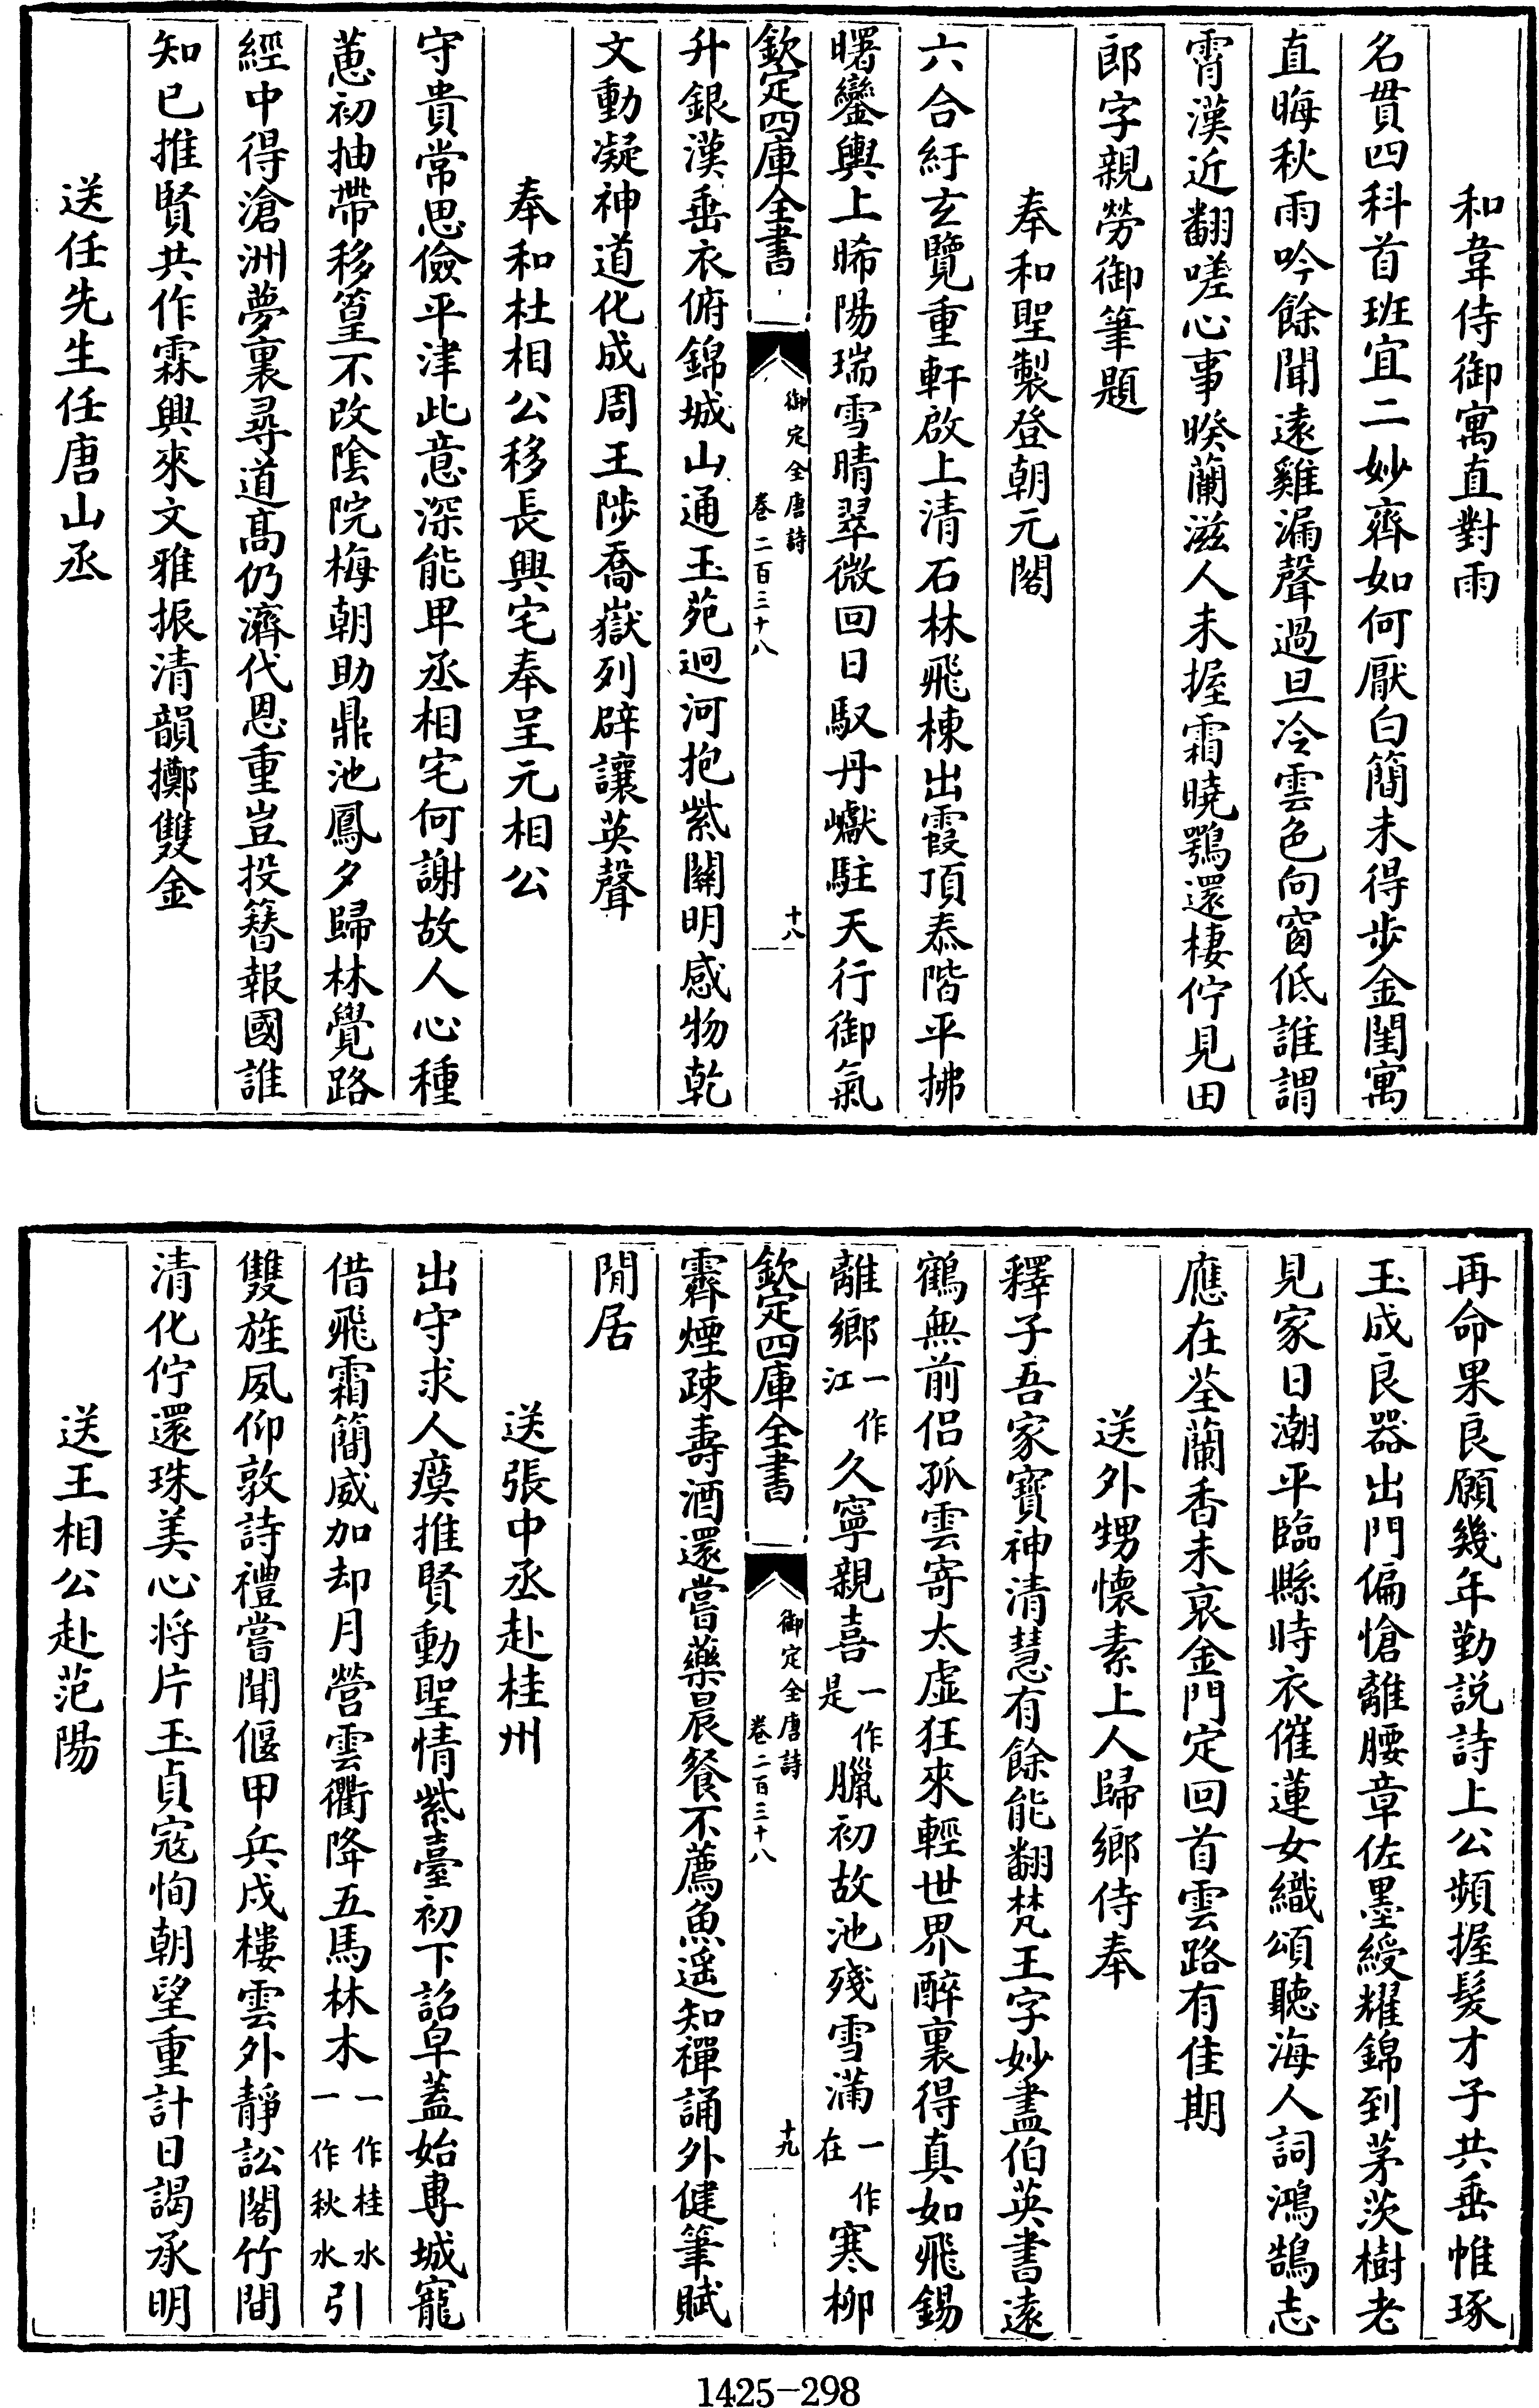 和韋侍御寓直對雨
名貫四科首班宜二妙齊如何厭白簡未得步金閨寓
直晦秋雨吟餘聞遠雞漏聲過旦冷雲色向窗低誰謂
霄漢近翻嗟心事暌蘭滋人未握霜曉鶚還棲佇見田
郎字親勞御筆題
奉和聖製登朝元閣
六合紆玄覽重軒啟上清石林飛棟出霞頂泰階平拂
曙鑾輿上晞陽瑞雪晴翠微回日馭丹巘駐天行御氣
欽定四庫全書
御定全唐詩
卷二百三十八
十八
升銀漢垂衣俯錦城山通玉苑迥河抱紫關明感物乾
文動凝神道化成周王陟喬嶽列辟讓英聲
奉和杜相公移長興宅奉呈元相公
守貴常思儉平津此意深能卑丞相宅何謝故人心種
蕙初抽帶移篁不改陰院梅朝助鼎池鳳夕歸林覺路
經中得滄洲夢裏尋道高仍濟代恩重豈投簪報國誰
知已推賢共作霖興來文雅振清韻擲雙金
送任先生任唐山丞
再命果良願幾年勤說詩上公頻握髮才子共垂帷琢
玉成良器出門偏愴離腰章佐墨綬耀錦到茅茨樹老
見家日潮平臨縣時衣催蓮女織頌聽海人詞鴻鵠志
應在荃蘭香未衰金門定回首雲路有佳期
送外甥懷素上人歸鄉侍奉
釋子吾家寶神清慧有餘能翻梵王字妙盡伯英書遠
鶴無前侶孤雲寄太虛狂來輕世界醉裏得真如飛錫
離鄉一作江久寧親喜一作是臘初故池殘雪滿一作在寒柳
欽定四庫全書
御定全唐詩
卷二百三十八
十九
霽煙疎壽酒還嘗藥晨餐不薦魚遥知禪誦外健筆賦
閒居
送張中丞赴桂州
出守求人瘼推賢動聖情紫臺初下詔皁蓋始專城寵
借飛霜簡威加却月營雲衢降五馬林木一作桂水一作秋水引
雙旌夙仰敦詩禮嘗聞偃甲兵戍樓雲外靜訟閣竹間
清化佇還珠美心將片玉貞寇恂朝望重計日謁承明
送王相公赴范陽
1425-298